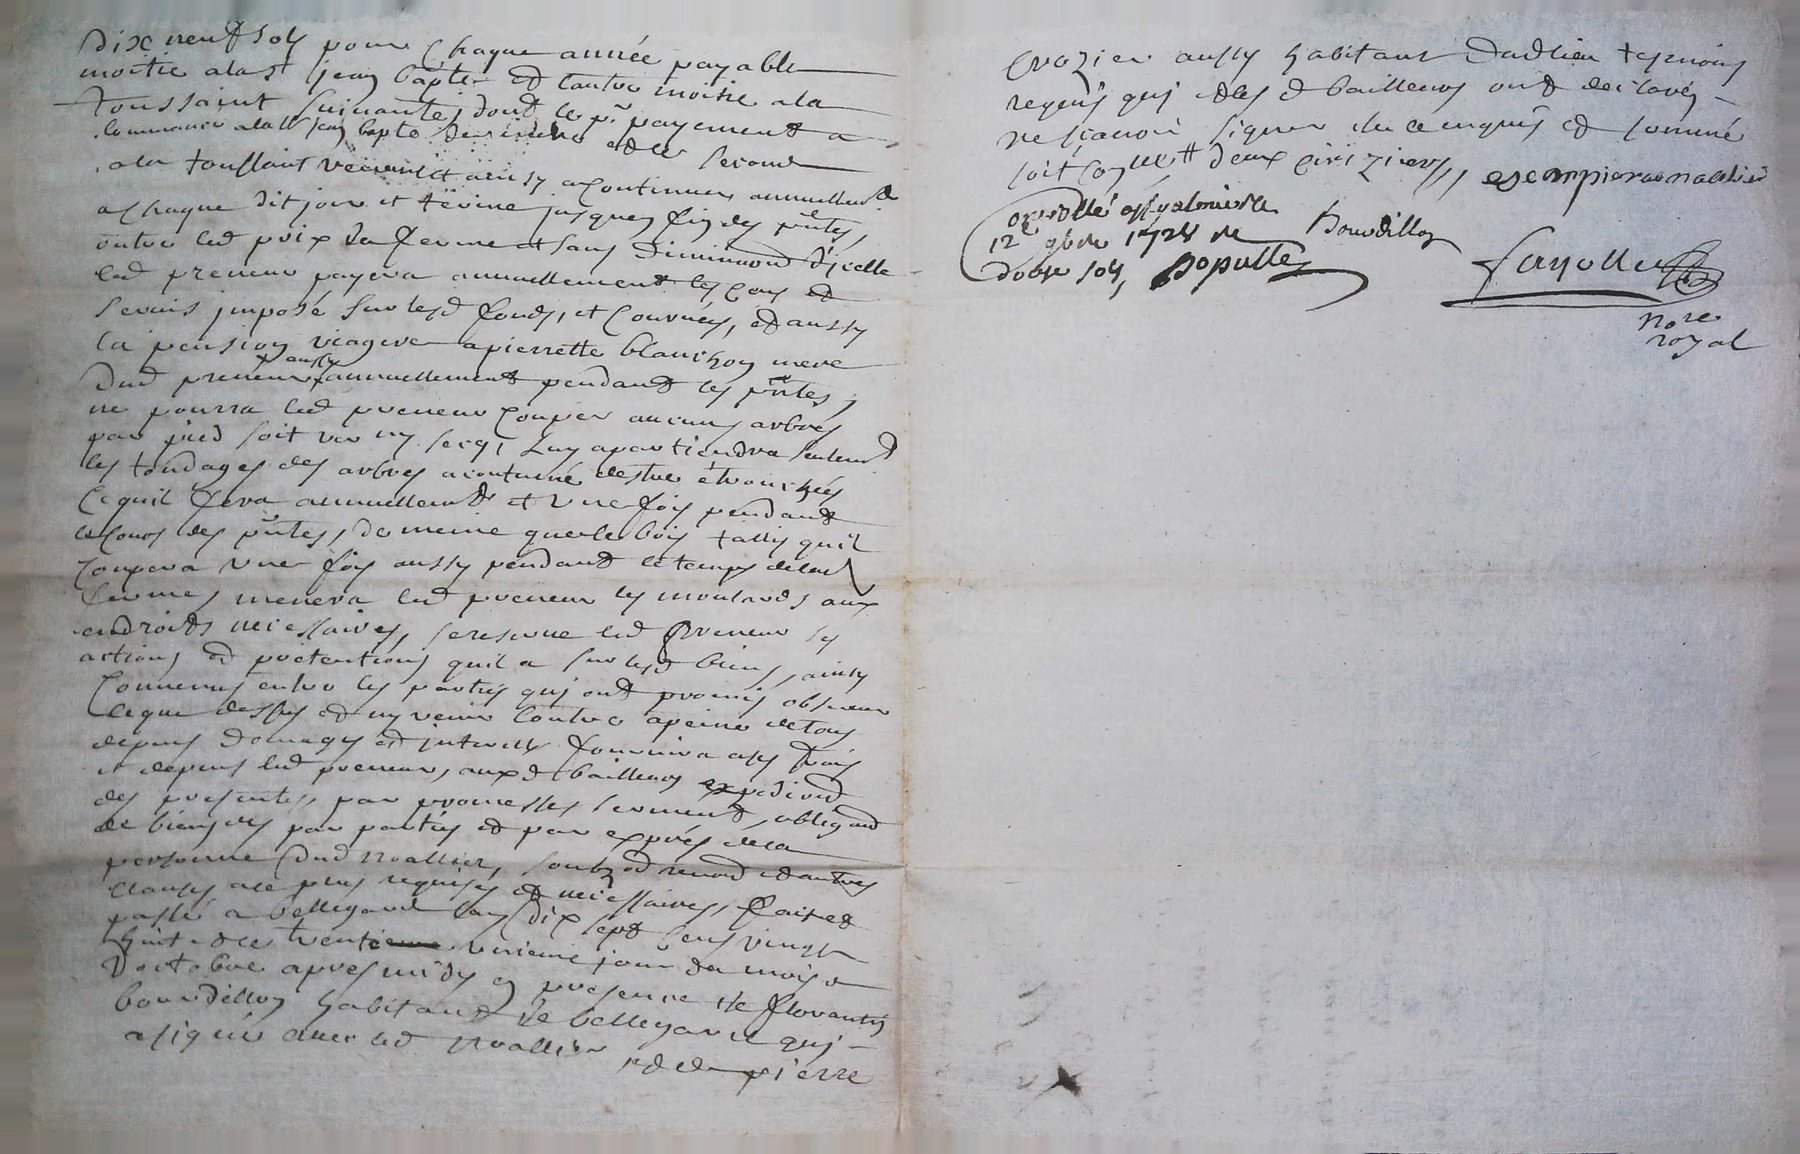 Dix neuf sols pour Chaque année payable
moitié a la st jean bapte et lautre moitié a la
toussaint suivante, dont le pr payement a
commancer a la st jean bapte et le second
a la toussaint ainsy a continuer annuellemt
a chaque dit jour et terme jusques fin des pntes,
outre led prix de ferme et sans diminuon d'icelle
led preneur payera annuellement les cens et
servis imposé sur lesd fonds, et courvées, et aussy
la pension viagere a pierrette blanchon mere
Dud preneur aussy annuellement pendant les pntes,
ne pourra led preneur couper aucuns arbres
par pied soit ver ny secq, luy apartiendra seulemt
les tondages des arbres acoutumé destre ébranchés
ce quil fera annuellemt et une fois pendant
le cours des pntes, de meme que le bois tallis quil
coupera une fois aussy pendant le temps de lad
ferme, menera led preneur les moulards aux
endroits necessaires, se reserve led preneur ses
actions et pretentions quil a sur lesd biens, ainsy
Convenus entre les parties quj ont promis observer
ce que dessus et ny venir contre a peine de tous
depens domages et interests fournira a ses frais
et depens led preneur, auxd bailleurs expediond
des presentes, par promesses serment, obligaod
de biens par parties et par exprés de la
personne Dud noallier, soubz od renond et autres
clauses a ce plus requises et necessaires, fait et
passé a bellegarde lan Dix sept cens vingt
huit et le trentieme unieme jour du mois
D'octobre apres midy en presence de florantin
bourdillon habitant de bellegarde quj
a signé avec led noallier et de pierre
Crozier aussy habitant dud lieu tesmoins
requis quj et les d bailleurs ont declarés
ne sçavoir signer de ce enquis et sommé
soit deux
pierre noallier
controllé a st galmier le
12e 9bre 1728 Re
douze sols, Bopulles
Bourdillon
Fayolle
nore
royal